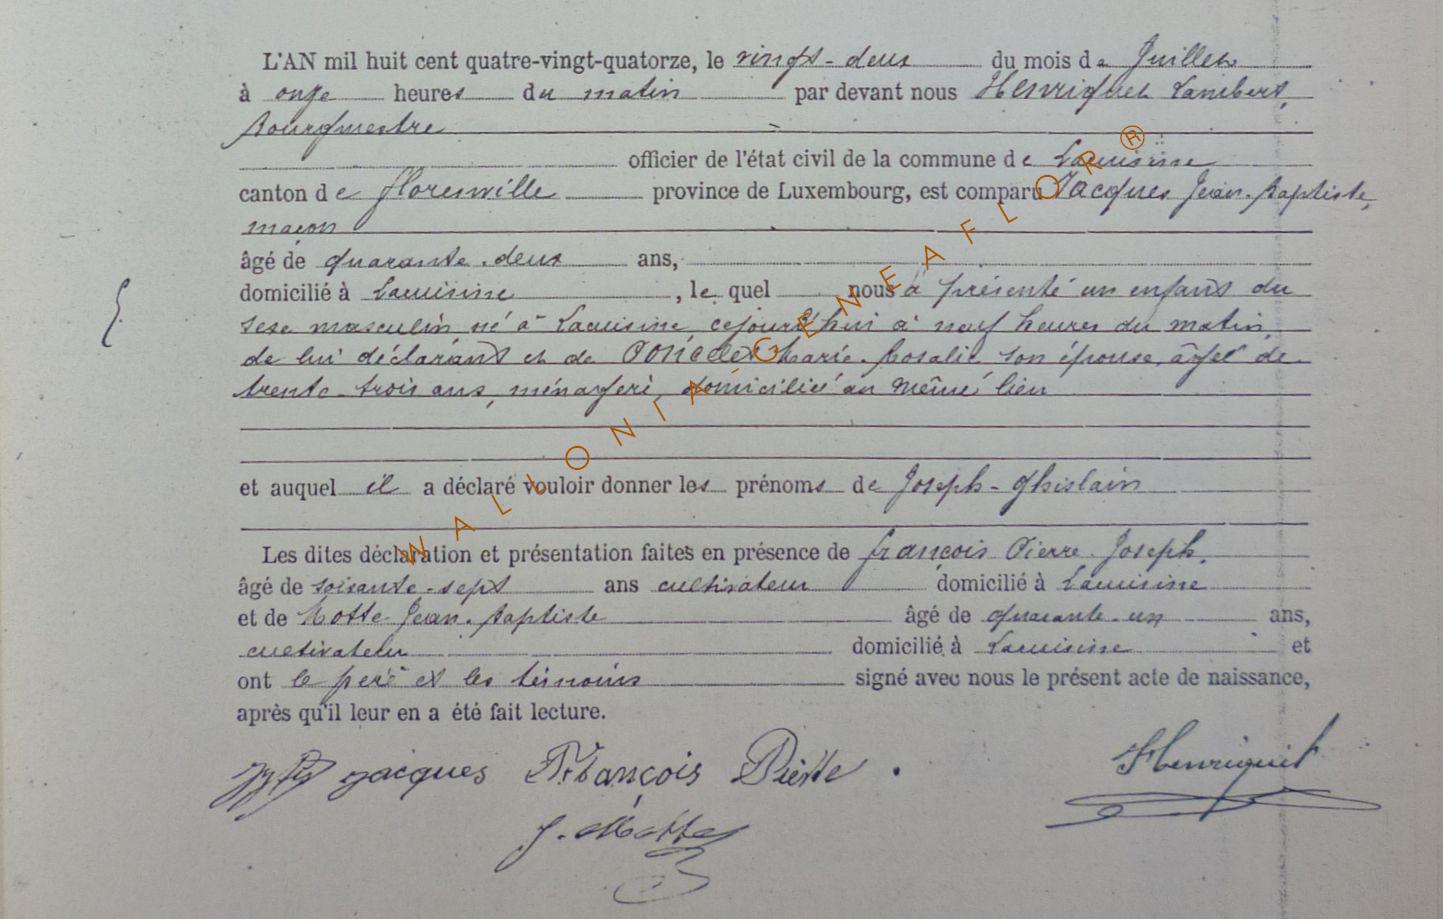 L'AN mil huit cent quatre-vingt-quatorze, le vingt-deux du mois de Juillet
à onze heures du matin par devant nous Henriquet Lambert,
Bourgmestre
officier de l'état civil de la commune de Lacuisine
canton de Florenville province de Luxembourg, est comparu Jacques Jean-Baptiste,
maçon
âgé de quarante-deux ans,
domicilié à Lacuisine, le quel nous a présenté un enfant du
sexe masculin né à Lacuisine, cejourd'hui à neuf heures du matin
de lui déclarant et de Marie-Rosalie son épouse, âgée de
trente-trois ans, ménagère, domiciliée au même lieu
et auquel il a déclaré vouloir donner les prénoms de Joseph-Ghislain
Les dites déclaration et présentation faites en présence de François Pierre-Joseph,
âgé de soixante-sept ans cultivateur domicilié à Lacuisine
et de Motte Jean-Baptiste âgé de quarante-un ans,
cultivateur domicilié à Lacuisine et
ont le père et les témoins signé avec nous le présent acte de naissance,
après qu'il leur en a été fait lecture.
Jacques François Pierre. Henriquet
J. Motte
WALLONIA-GENEAFLOR®